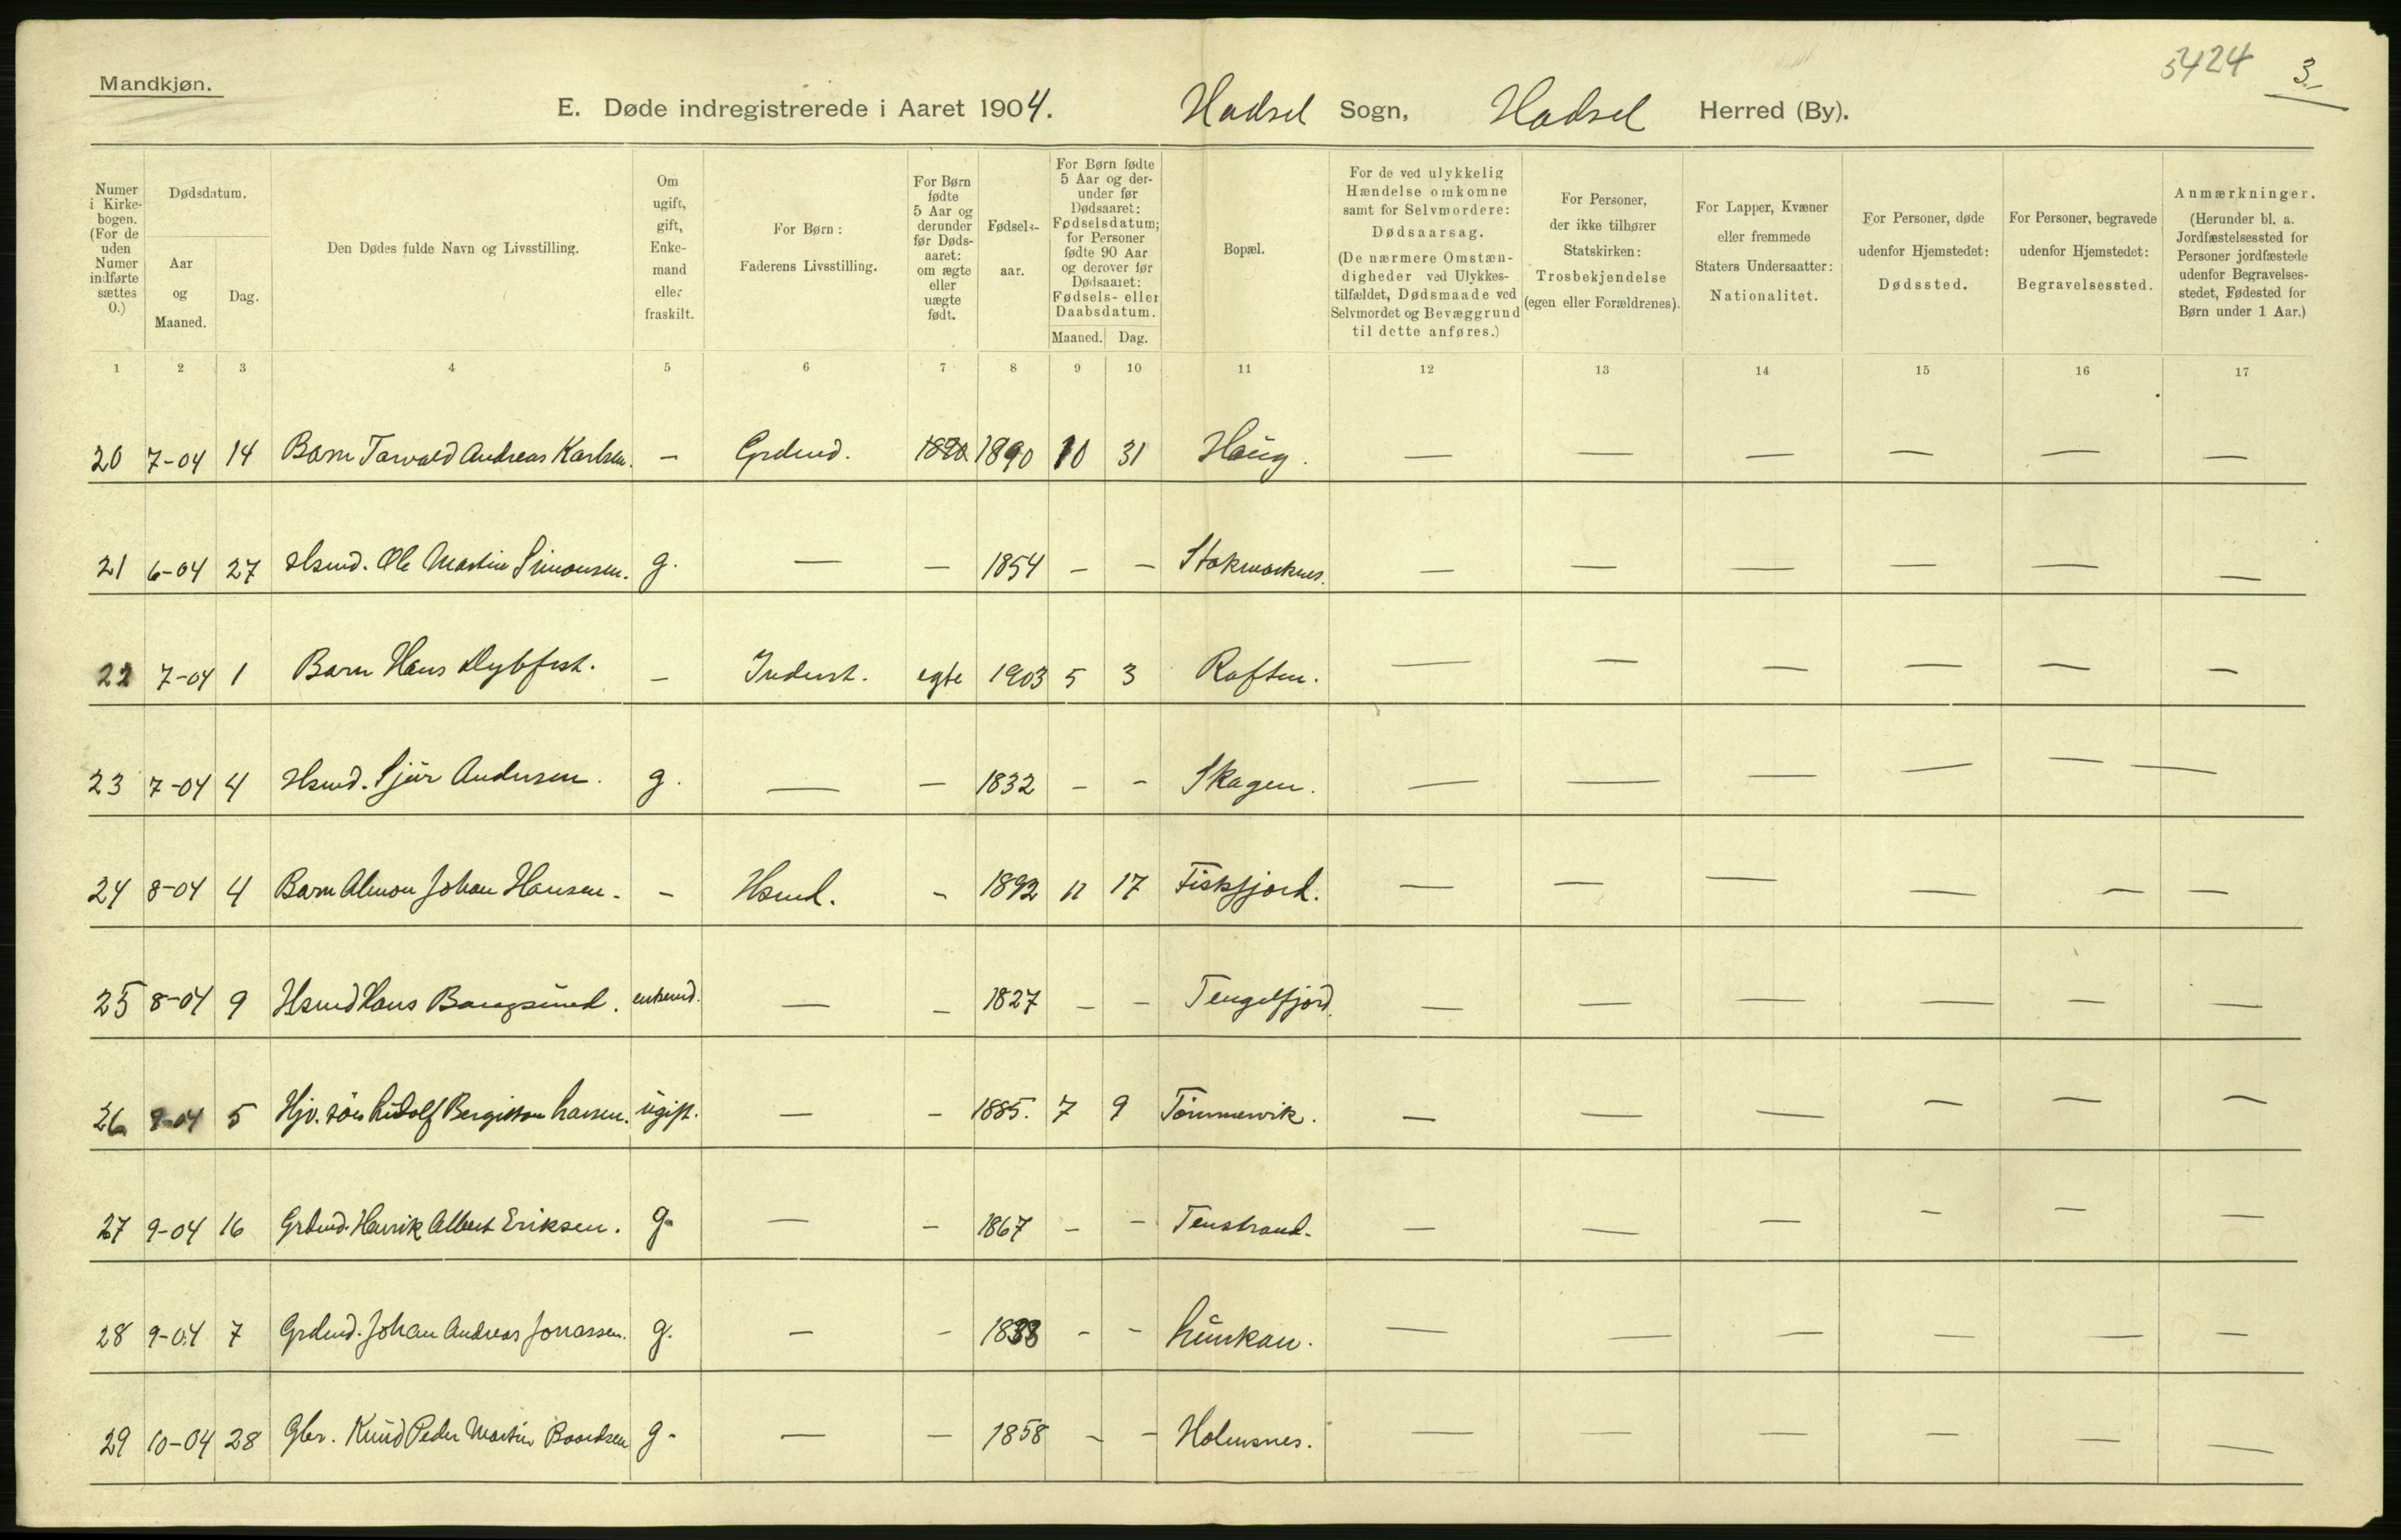 5424 3.
Mandkjøn.
E. Døde indregistrerede i Aaret 1904. Hadsel Sogn, Hadsel Herred (By).
Numer i Kirkebogen. (For de uden Numer indførte sættes 0.)
Dødsdatum.
Aar og Maaned.
Dag.
Den Dødes fulde Navn og Livsstilling.
Om ugift, gift, Enkemand eller fraskilt.
For Børn: Faderens Livsstilling.
For Børn fødte 5 Aar og derunder før Dødsaaret: om ægte eller uægte født.
Fødselsaar.
For Børn fødte 5 Aar og derunder før Dødsaaret: Fødselsdatum; for Personer fødte 90 Aar og derover før Dødsaaret: Fødsels- eller Daabsdatum.
Maaned. Dag.
Bopæl.
For de ved ulykkelig Hændelse omkomne samt for Selvmordere: Dødsaarsag. (De nærmere Omstændigheder ved Ulykkestilfældet, Dødsmaade ved Selvmordet og Bevæggrund til dette anføres.)
For Personer, der ikke tilhører Statskirken: Trosbekjendelse (egen eller Forældrenes).
For Lapper, Kvæner eller fremmede Staters Undersaatter: Nationalitet.
For Personer, døde udenfor Hjemstedet: Dødssted.
For Personer, begravede udenfor Hjemstedet: Begravelsessted.
Anmærkninger. (Herunder bl. a. Jordfæstelsessted for Personer jordfæstede udenfor Begravelsesstedet, Fødested for Børn under 1 Aar.)
1 2 3 4 5 6 7 8 9 10 11 12 13 14 15 16 17
20 7-04 14 Barn Tarvald Andreas Karlsen. — Grdmd. 1890 1890 10 31 Haug. — — — — — —
21 6-04 27 Hsmd. Ole Martin Simonsen. g. — — 1854 — — Stokmarknes. — — — — — —
22 7-04 1 Barn Hans Dybfest. — Inderst. egte 1903 5 3 Raften. — — — — — —
23 7-04 4 Hsmd. Sjur Andersen. g. — — 1832 — — Skagen. — — — — — —
24 8-04 4 Barn Almon Johan Hansen. — Hsmd. — 1892 11 17 Fiskfjord. — — — — — —
25 8-04 9 Hsmd Hans Bangsund. enkemd. — — 1827 — — Tengelfjord. — — — — — —
26 9-04 5 Hjv. søn Ludolf Bergitton Larsen. ugift. — — 1885. 7 9 Tömmervik. — — — — — —
27 9-04 16 Grdmd. Henrik Albert Eriksen. g. — — 1867 — — Tenstrand. — — — — — —
28 9-04 7 Grdmd. Johan Andreas Jonassen. g. — — 1838 — — Lunkan. — — — — — —
29 10-04 28 Gbr. Knud Peder Martin Baardsen g. — — 1858 — — Holmsnes. — — — — — —